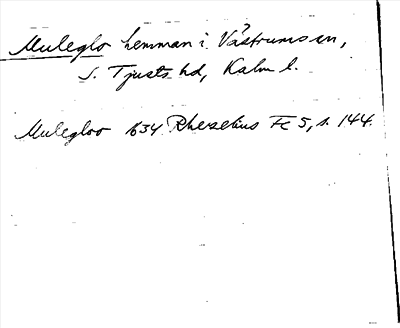 Muleglo hemman i Västrums sn,
S. Tjusts hd, Kalm l.
Mulegloo 1634 Rhezelius Fc 5, s. 144.